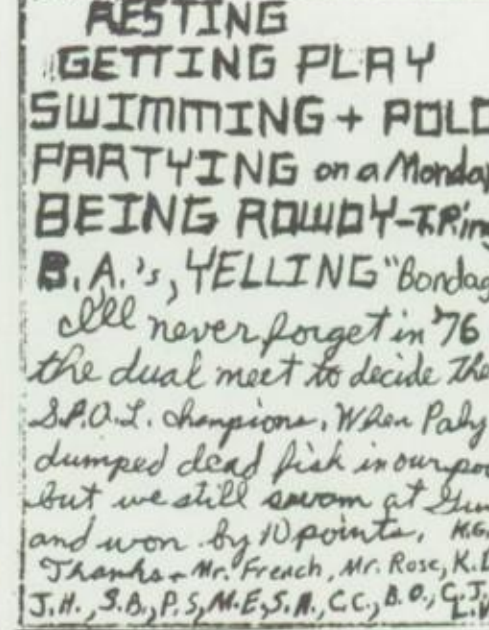 RESTING
GETTING PLAY
SWIMMING + POLO
PARTYING on a Monday
BEING ROWDY-T.P.ing
B.A.'s, YELLING "Bondag
I'll never forget in '76
the dual meet to decide the
S.P.A.L. champions. When Paly
dumped dead fish in our poo
but we still swam at Gun
and won by 10 points. K.G.
Thanks - Mr. French, Mr. Rose, K.L
J.H., S.B., P.S, M.E, S.A., C.C., B.O., C.J.
L.V